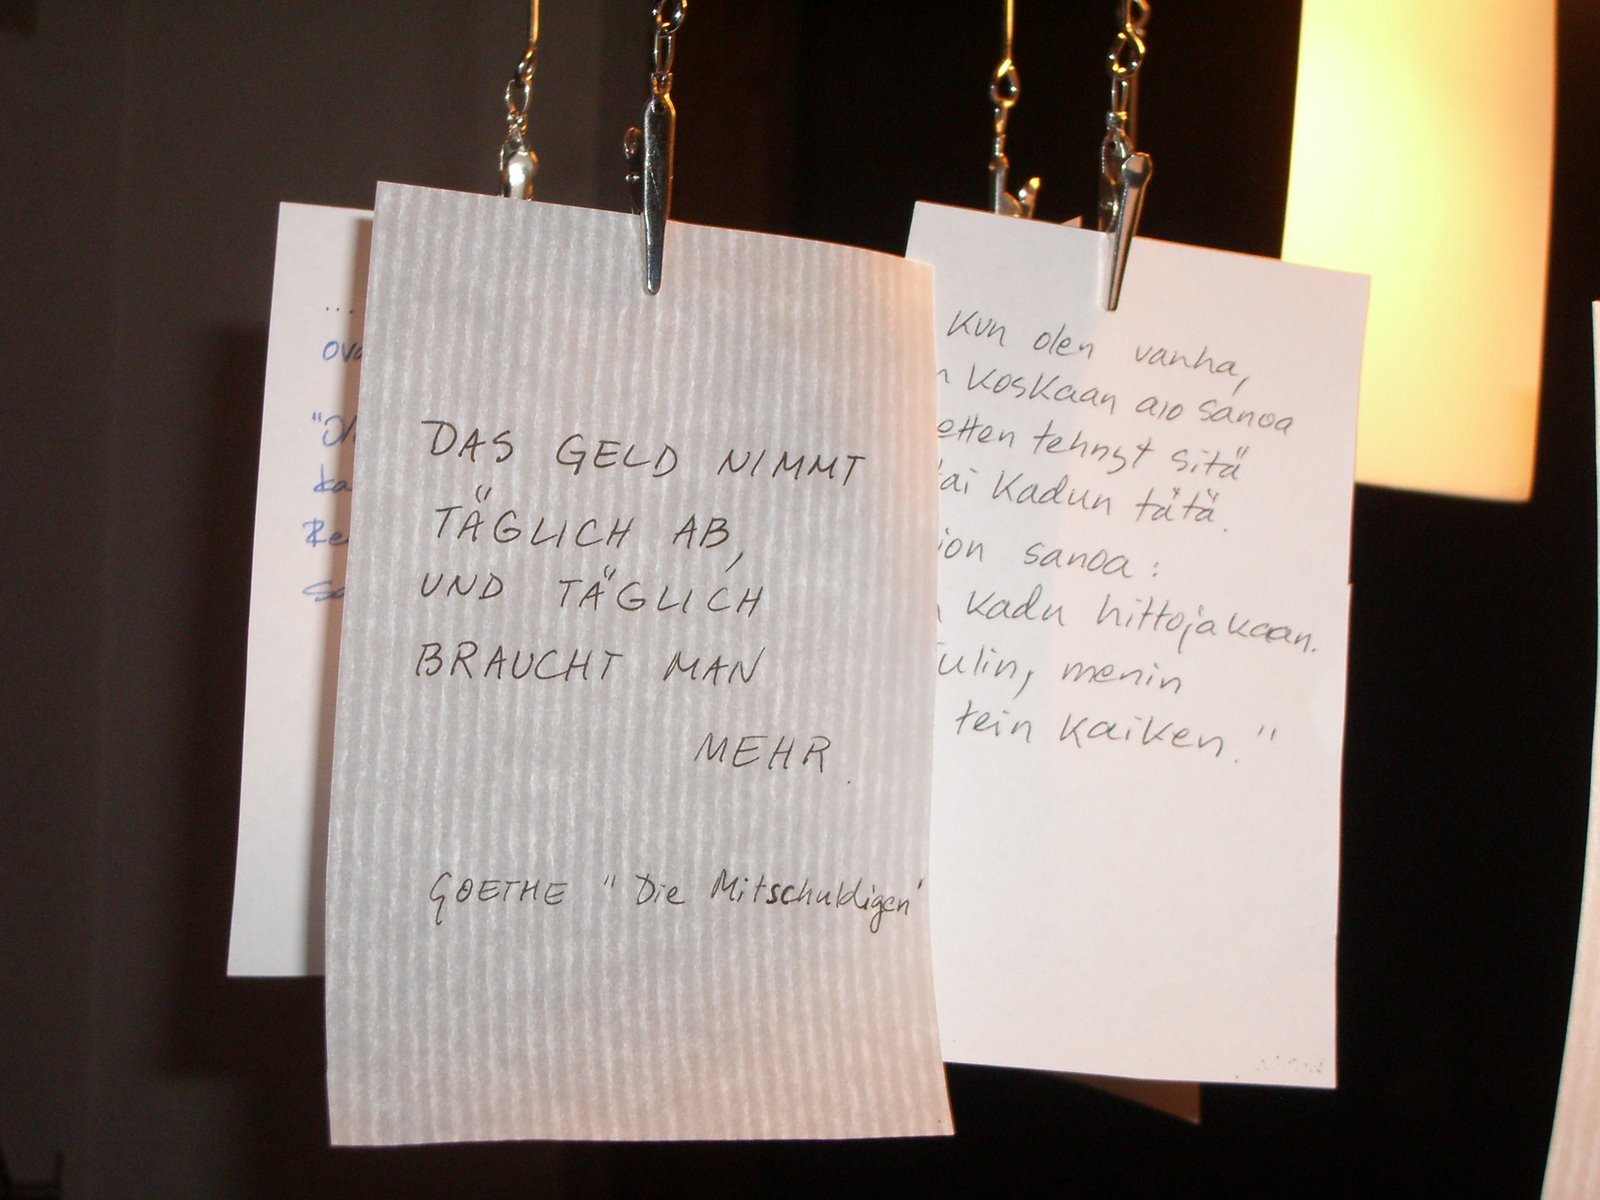 DAS GELD NIMMT
TÄGLICH AB,
UND TÄGLICH
BRAUCHT MAN
MEHR.
GOETHE "Die Mitschuldigen"
Kun olen vanha,
koskaan aio sanoa
etten tehnyt sitä
tai kadun tätä.
sanoa:
kadu hittojakaan.
Tulin, menin
tein kaiken."